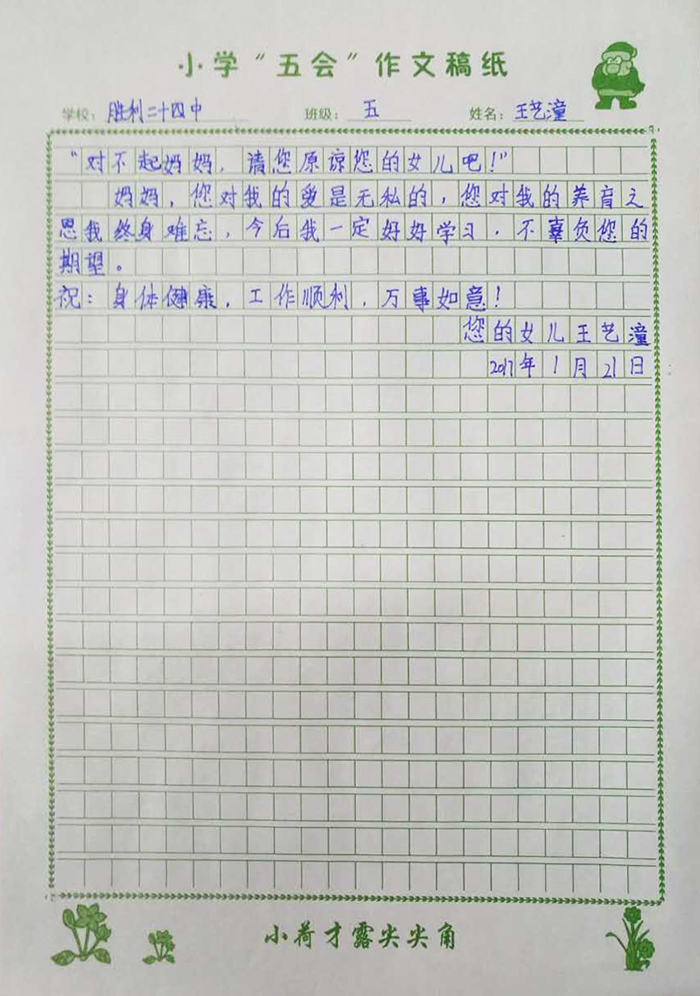 小学“五会”作文稿纸
学校：胜利二十四中 班级：五 姓名：王艺潼
“对不起妈妈，请您原谅您的女儿吧！”
妈妈，您对我的爱是无私的，您对我的养育之
恩我终身难忘，今后我一定好好学习，不辜负您的
期望。
祝：身体健康，工作顺利，万事如意！
您的女儿王艺潼
2017年1月21日
小荷才露尖尖角